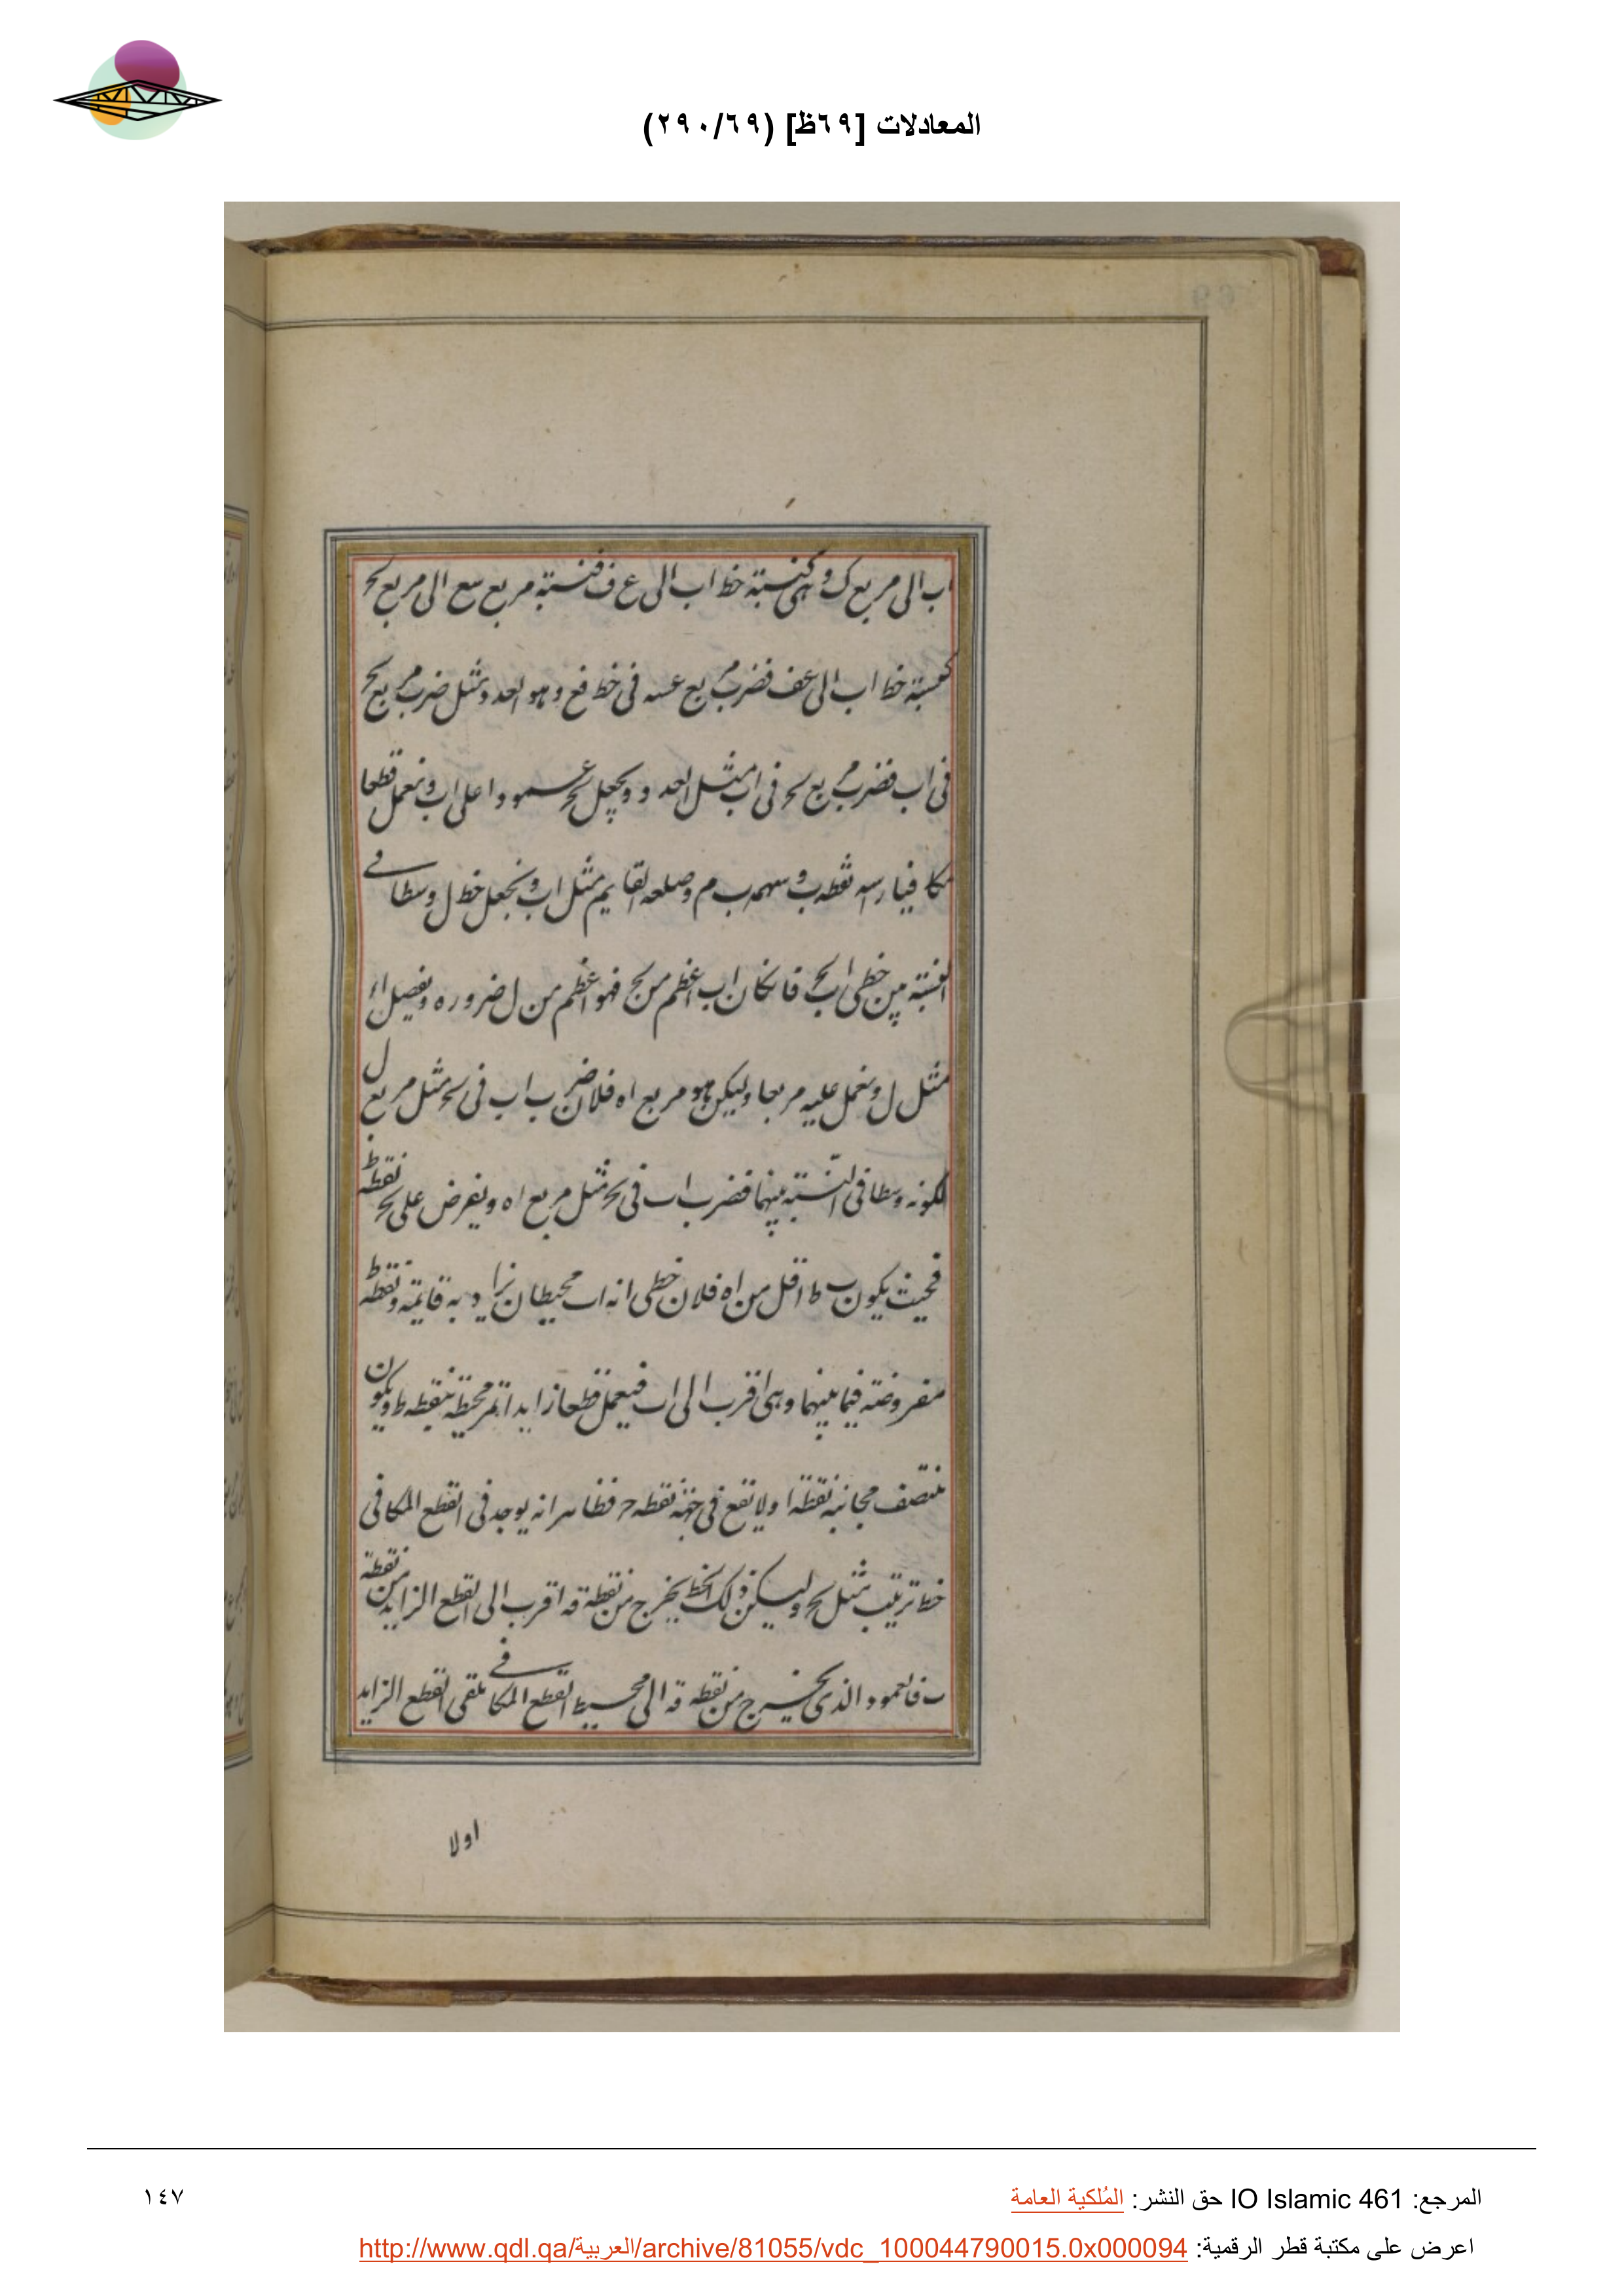 المعادلات [٦٩ظ] (٢٩٠/٦٩)
اب الى مربع ك و هى كنسبة خط اب الى ع ف فنسبة مربع سع الى مربع بح
كنسبة خط اب الى عف فضرب مربع عسه فى خط فع وهو العدد مثل ضرب مربع بح
فى اب فضرب مربع بح فى اب مثل العدد ونجعل بح عمودا على اب ونعمل قطعا
مكافيا راسه نقطه ب وسهمه ب م وضلعه القايم مثل اب ونجعل خط ل وسطا فى
النسبة بين خطى اب بح فانكان اب اعظم من بح فهو اعظم من ل ضروره ونفصل اه
مثل ل ونعمل عليه مربعا وليكن هو مربع اه فلان ضرب اب فى بح مثل مربع ل
لكونه وسطا فى النسبة بينهما فضرب اب فى بح مثل مربع اه ويفرض على بح نقطه ط
فحيث يكون ب ط اقل من اه فلان خطى انه اب محيطان بزاوية قايمة ونقطه ط
مفروضة فيما بينهما وهى اقرب الى اب فيعمل قطعا زايدا تمر محيطة بنقطه ط ويكون
منتصف مجانبه نقطة ا ولا تقع فى جهة نقطه ح فظاهر انه يوجد فى القطع المكافى
خط ترتيب مثل بح وليكن ذلك الخط يخرج من نقطة قه اقرب الى القطع الزايد من نقطة
ب فالعمود الذى يخرج من نقطه قه الى محيط القطع المكافى يلقى القطع الزايد
اولا
المرجع: IO Islamic 461 حق النشر: المُلكية العامة
١٤٧
اعرض على مكتبة قطر الرقمية: http://www.qdl.qa/العربية/archive/81055/vdc_100044790015.0x000094